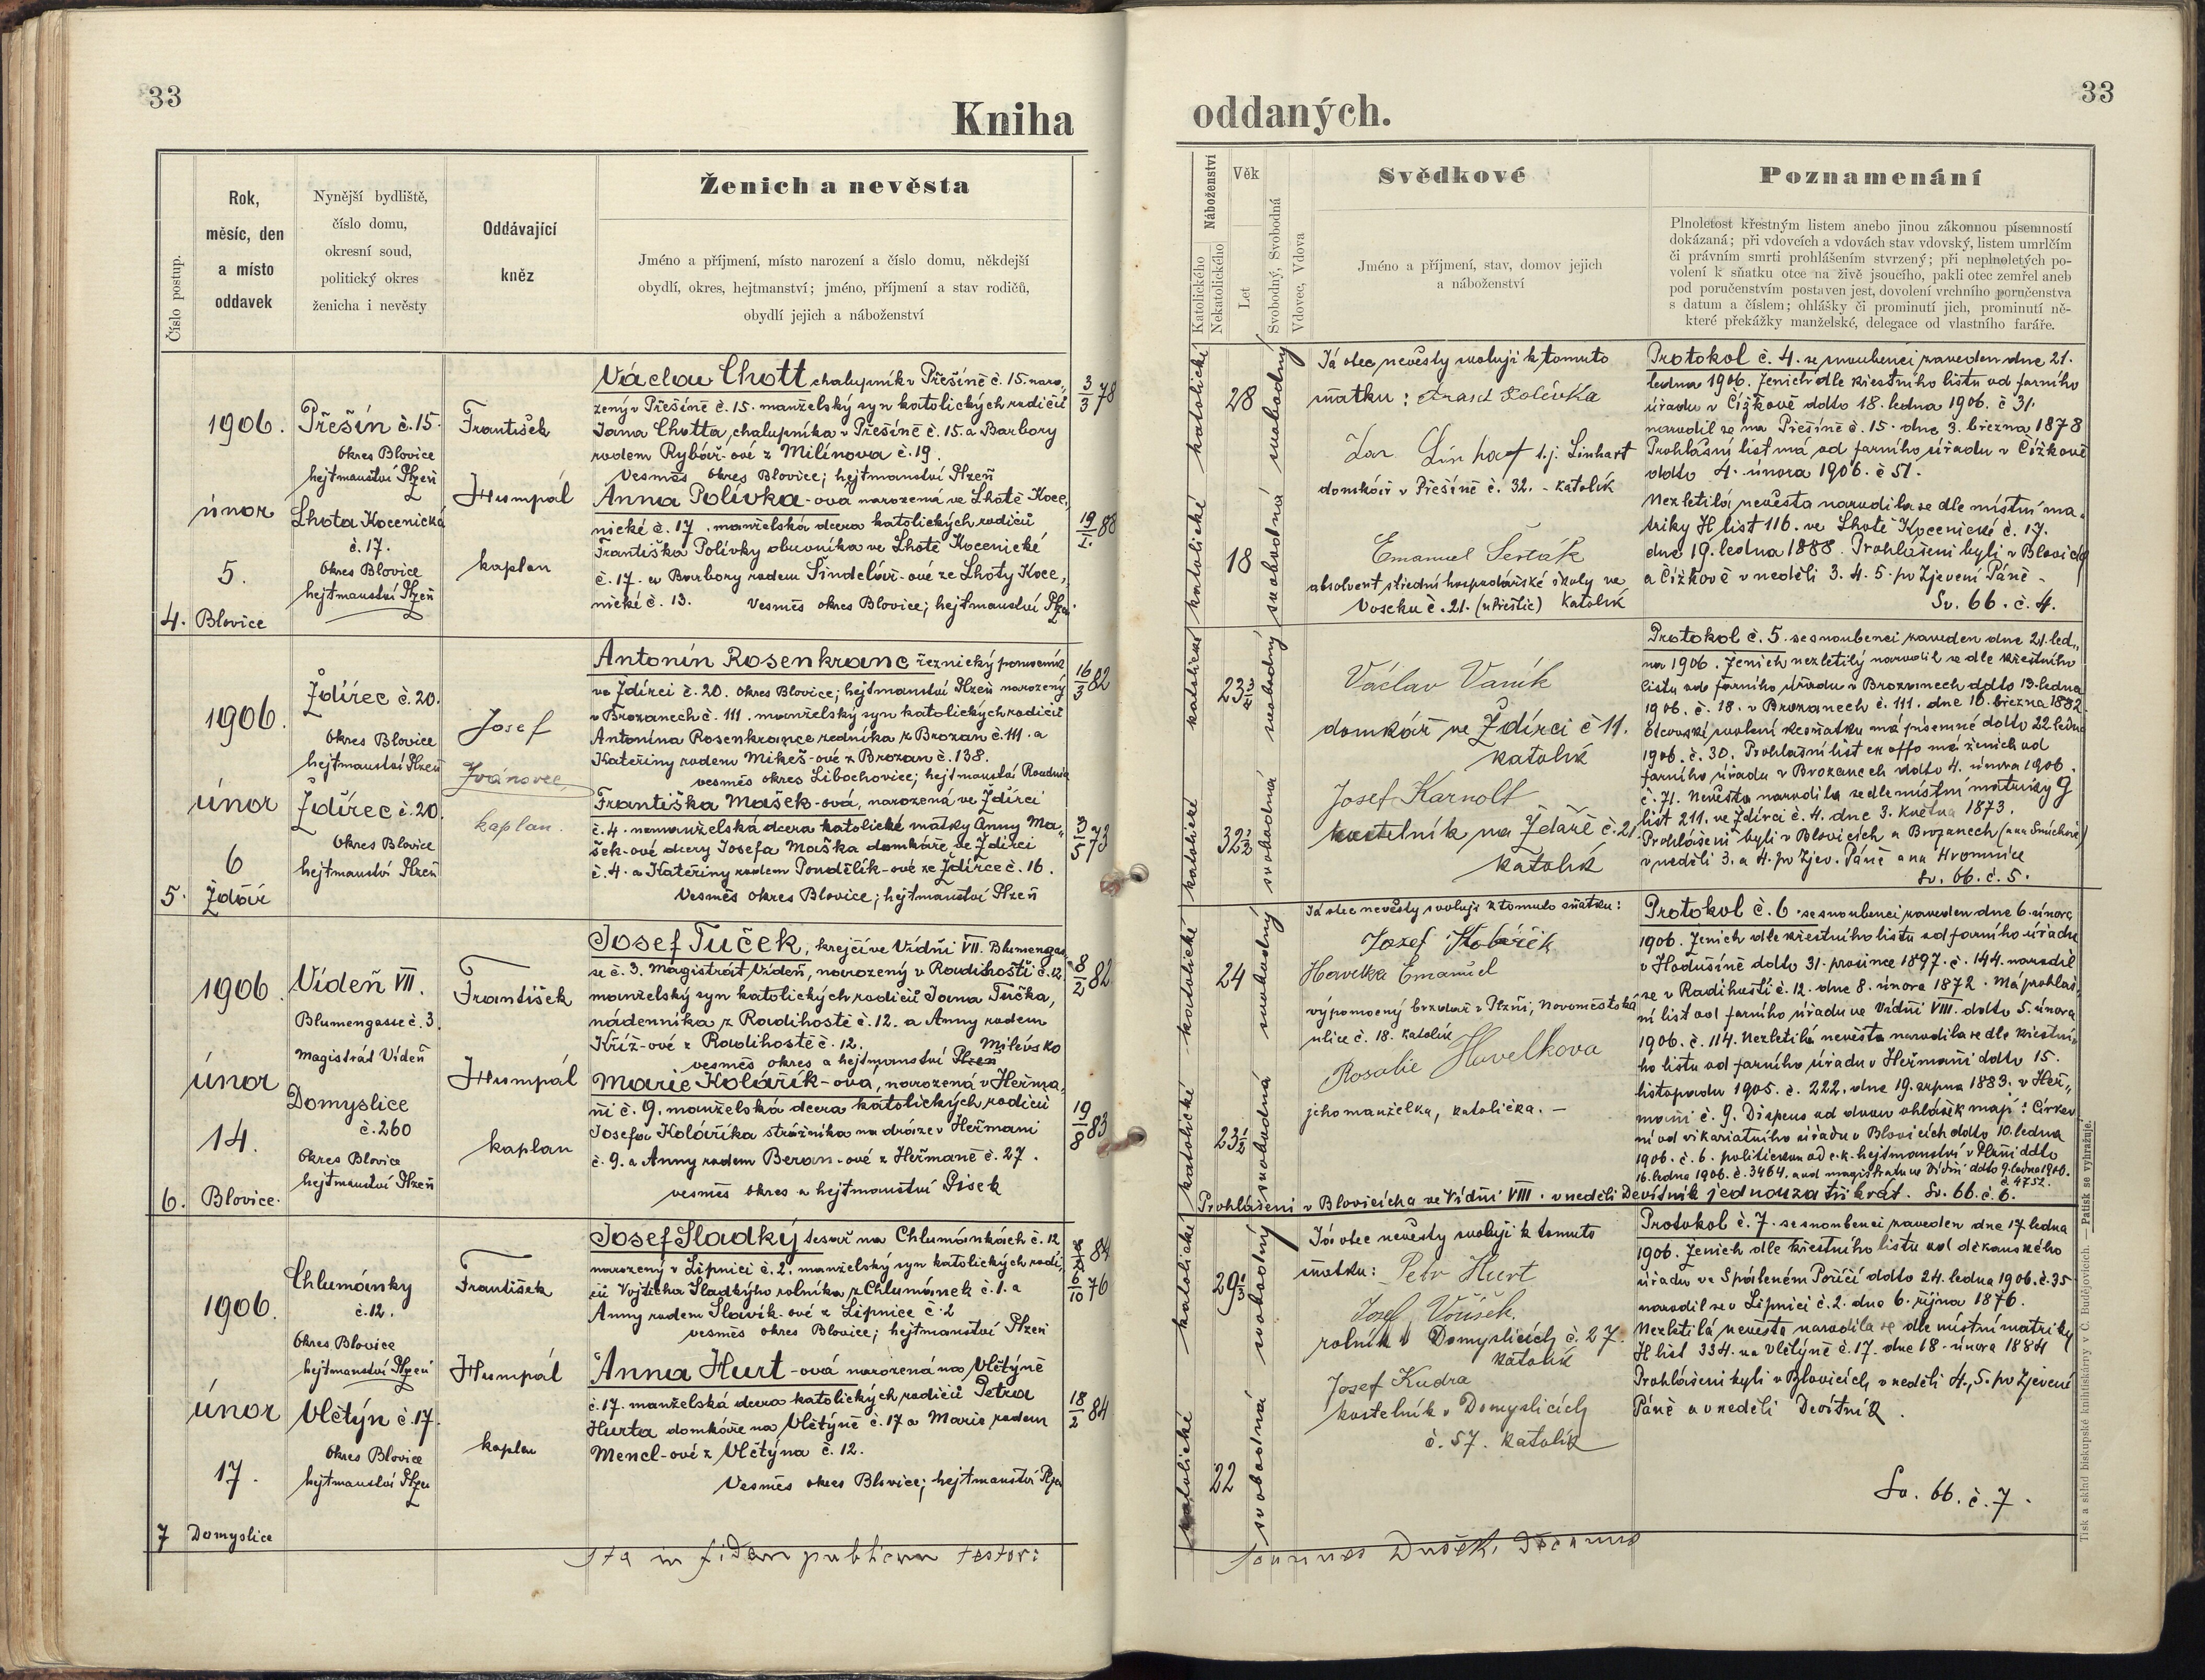 33
Kniha
Číslo postup.
Rok,
měsíc, den
a místo
oddavek
Nynější bydliště,
číslo domu,
okresní soud,
politický okres
ženicha i nevěsty
Oddávající
kněz
Ženich a nevěsta
Jméno a příjmení, místo narození a číslo domu, někdejší
obydlí, okres, hejtmanství; jméno, příjmení a stav rodičů,
obydlí jejich a náboženství
1906.
únor
5.
4. Blovice
Přešín č. 15.
okres Blovice
hejtmanství Plzeň
Lhota Kocenická
č. 17.
okres Blovice
hejtmanství Plzeň
František
Humpál
kaplan
Václav Chott, chalupník v Přešíně č. 15. naro„
zený v Přešíně č. 15. manželský syn katolických rodičů
Jana Chotta, chalupníka v Přešíně č. 15. a Barbory
rodem Rybář-ové z Milínova č. 19.
Vesměs okres Blovice; hejtmanství Plzeň
3/3 78
Anna Polívka-ova narozená ve Lhotě Koce„
nické č. 17. manželská dcera katolických rodičů
Františka Polívky obuvníka ve Lhotě Kocenické
č. 17. a Barbory rodem Šindelář-ové ze Lhoty Koce„
nické č. 13. Vesměs okres Blovice; hejtmanství Plzeň.
19/1. 88
1906.
únor
6
5. Ždár
Ždírec č. 20.
okres Blovice
hejtmanství Plzeň
Ždírec č. 20.
okres Blovice
hejtmanství Plzeň
Josef
Ivánovec,
kaplan.
Antonín Rosenkranc řeznický pomocník
ve Ždírci č. 20. okres Blovice; hejtmanství Plzeň narozený
v Brozanech č. 111. manželský syn katolických rodičů
Antonína Rosenkrance ředníka z Brozan č. 111. a
Kateřiny rodem Mikeš-ové z Brozan č. 138.
vesměs okres Libochovice; hejtmanství Roudnice
16/3 82
Františka Mašek-ová, narozená ve Ždírci
č. 4. nemanželská dcera katolické matky Anny Ma„
šek-ové dcery Josefa Maška domkáře ve Ždírci
č. 4. a Kateřiny rodem Pondělík-ové ze Ždírce č. 16.
Vesměs okres Blovice; hejtmanství Plzeň
3/5 73
1906.
únor
14.
6. Blovice.
Vídeň VII.
Blumengasse č. 3.
Magistrát Vídeň
Domyslice
č. 260
okres Blovice
hejtmanství Plzeň
František
Humpál
kaplan
Josef Tuček, krejčí ve Vídni VII. Blumengas
se č. 3. Magistrát Vídeň, narozený v Radihošti č. 12.
manželský syn katolických rodičů Jana Tučka,
nádenníka z Radihoště č. 12. a Anny rodem
Kříž-ové z Radihoště č. 12. Milevsko
vesměs okres a hejtmanství Plzeň
8/2 82
Marie Kolářík-ova, narozená v Heřma„
ni č. 9. manželská dcera katolických rodičů
Josefa Koláříka strážníka na dráze v Heřmani
č. 9. a Anny rodem Beran-ové z Heřmaně č. 27.
vesměs okres a hejtmanství Písek
19/8 83
1906.
únor
17.
7 Domyslice
Chlumánky
č. 12.
okres Blovice
hejtmanství Plzeň
Vlčtýn č. 17.
okres Blovice
hejtmanství Plzeň
František
Humpál
kaplan
Josef Sladký tesař na Chlumánkách č. 12
narozený v Lipnici č. 2. manželský syn katolických rodi„
čů Vojtěcha Sladkýho rolníka z Chlumánek č. 1. a
Anny rodem Slavík-ové z Lipnice č. 2
vesměs okres Blovice; hejtmanství Plzeň
84
6/10 76
Anna Hurt-ová narozená na Vlčtýně
č. 17. manželská dcera katolických rodičů Petra
Hurta domkáře na Vlčtýně č. 17 a Marie rodem
Mencl-ové z Vlčtýna č. 12.
Vesměs okres Blovice; hejtmanství Plzeň
18/2 84
Ita in fidem publicam testor:
33
oddaných.
Náboženství
Katolického
Nekatolického
Věk
Let
Svobodný, Svobodná
Vdovec, Vdova
Svědkové
Jméno a příjmení, stav, domov jejich
a náboženství
Poznamenání
Plnoletost křestným listem anebo jinou zákonnou písemností
dokázaná; při vdovcích a vdovách stav vdovský, listem umrlčím
či právním smrti prohlášením stvrzený; při neplnoletých po-
volení k sňatku otce na živě jsoucího, pakli otec zemřel aneb
pod poručenstvím postaven jest, dovolení vrchního poručenstva
s datum a číslem; ohlášky či prominutí jich, prominutí ně-
které překážky manželské, delegace od vlastního faráře.
katolické
28
svobodný
katolické
18
svobodná
Já otec nevěsty svoluji k tomuto
sňatku: Frant Polívka
Jan Linhart t. j. Linhart
domkář v Přešíně č. 32. - katolík
Emanuel Šesták
absolvent střední hospodářské školy ve
Voseku č. 21. (u Přeštic) katolík
Protokol č. 4. se snoubenci zaveden dne 21.
ledna 1906. Ženich dle křestního listu od farního
úřadu v Čížkově ddto 18. ledna 1906. č 31.
narodil se na Přešíně č. 15. dne 3. března 1878
Prohlášní list má od farního úřadu v Čížkově
ddto 4. února 1906. č 51.
Nezletilá nevěsta narodila se dle místní ma„
triky H list 116. ve Lhotě Kocenické č. 17.
dne 19. ledna 1888. Prohlášeni byli v Blovicích
a Čížkově v neděli 3. 4. 5. po Zjevení Páně -
Sv. 66. č. 4.
katolické
23 3/4
svobodný
katolické
32 1/2
svobodná
Václav Vaník
domkář ve Ždírci č 11.
katolík
Josef Karnolt
kostelník na Ždáře č. 21.
katolík
Protokol č. 5. se snoubenci zaveden dne 21. led„
na 1906. Ženich nezletilý narodil se dle křestního
listu od farního úřadu v Brozanech ddto 13. ledna
1906. č. 18. v Brozanech č. 111. dne 16. března 1882.
Otcovské svolení ke sňatku má písemné ddto 22 ledna
1906. č. 30. Prohlášní list ex offo má ženich od
farního úřadu v Brozanech ddto 4. února 1906.
č. 71. Nevěsta narodila se dle místní matriky G
list 211. ve Ždírci č. 4. dne 3. května 1873.
Prohlášeni byli v Blovicích a Brozanech (a na Smíchově)
v neděli 3. a 4. po Zjev. Páně a na Hromnice
Sv. 66. č. 5.
katolické
24
svobodný
katolické
23 1/2
svobodná
Já otec nevěsty svoluji k tomuto sňatku:
Jozef Kolářík
Havelka Emanuel
výpomocný brzdař v Plzni, Novoměstská
ulice č. 18. katolík
Rosalie Havelkova
jeho manželka, katolička. -
Protokol č. 6. se snoubenci zaveden dne 6. února
1906. Ženich dle křestního listu od farního úřadu
v Hodušíně ddto 31. prosince 1897. č. 144. narodil
se v Radihošti č. 12. dne 8. února 1872. Má prohláš„
ní list od farního úřadu ve Vídni VIII. ddto 5. února
1906. č. 114. Nezletilá nevěsta narodila se dle křestní„
ho listu od farního úřadu v Heřmani ddto 15.
listopadu 1905. č. 222. dne 19. srpna 1883. v Heř„
mani č. 9. Dispens od dvou ohlášek mají: Církev
ní od vikariatního úřadu v Blovicích ddto 10. ledna
1906. č. 6. politickou od c. k. hejtmanství v Plzni ddto
16. ledna 1906. č. 3464. a od magistratu ve Vídni ddto 9. ledna 1906.
č. 4752.
Prohlášeni v Blovicích a ve Vídni VIII. v neděli Devítník jednou za třikrát. Sv. 66. č. 6.
katolické
29 1/3
svobodný
katolické
22
svobodná
Já otec nevěsty svoluji k tomuto
sňatku: Petr Hurt
Josef Voříšek
rolník v Domyslicích č. 27.
katolík
Josef Kudra
kostelník v Domyslicích
č. 57. katolík
Protokol č. 7. se snoubenci zaveden dne 17. ledna
1906. Ženich dle křestního listu od děkanského
úřadu ve Spáleném Poříčí ddto 24. ledna 1906. č. 35
narodil se v Lipnici č. 2. dne 6. října 1876.
Nezletilá nevěsta narodila se dle místní matriky
H list 334. na Vlčtýně č. 17. dne 18. února 1884
Prohlášeni byli v Blovicích v neděli 4., 5. po Zjevení
Páně a v neděli Devítník.
Sv. 66. č. 7.
Joannes Dušek, Decanus
Tisk a sklad biskupské knihtiskárny v Č. Budějovicích. — Patisk se vyhražuje.